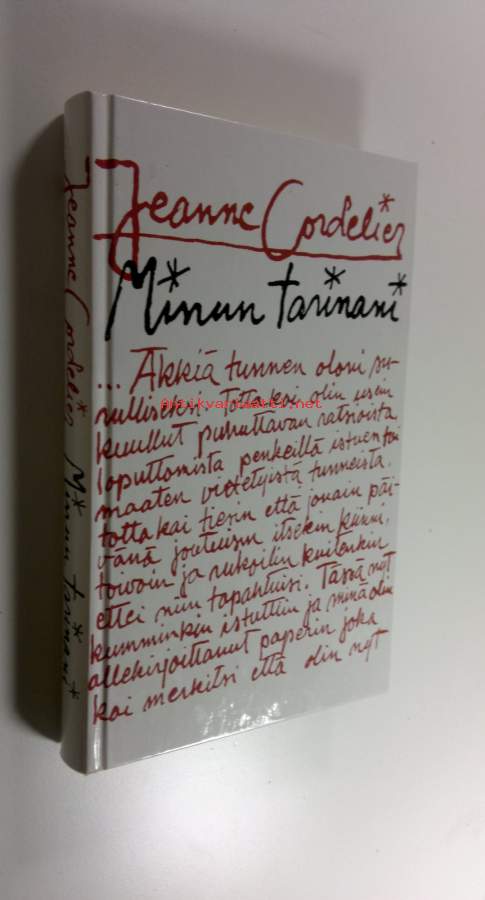 Jeanne Cordelier
Minun tarinani
... Äkkiä tunnen oloni su-
rulliseksi. Totta kai olin usein
kuullut puhuttavan ratsioista,
loputtomista penkeillä istuen tai
maaten vietetyistä tunneista.
totta kai tiesin että jonain päi-
vänä joutuisin itsekin kiinni,
toivoin ja rukoilin kuitenkin
ettei niin tapahtuisi. Tässä nyt
kumminkin istuttiin ja minä olin
allekirjoittanut paperin joka
kai merkitsi että olin nyt
Jeanne Cordelier Minun tarinani
Antikvariaatti.net